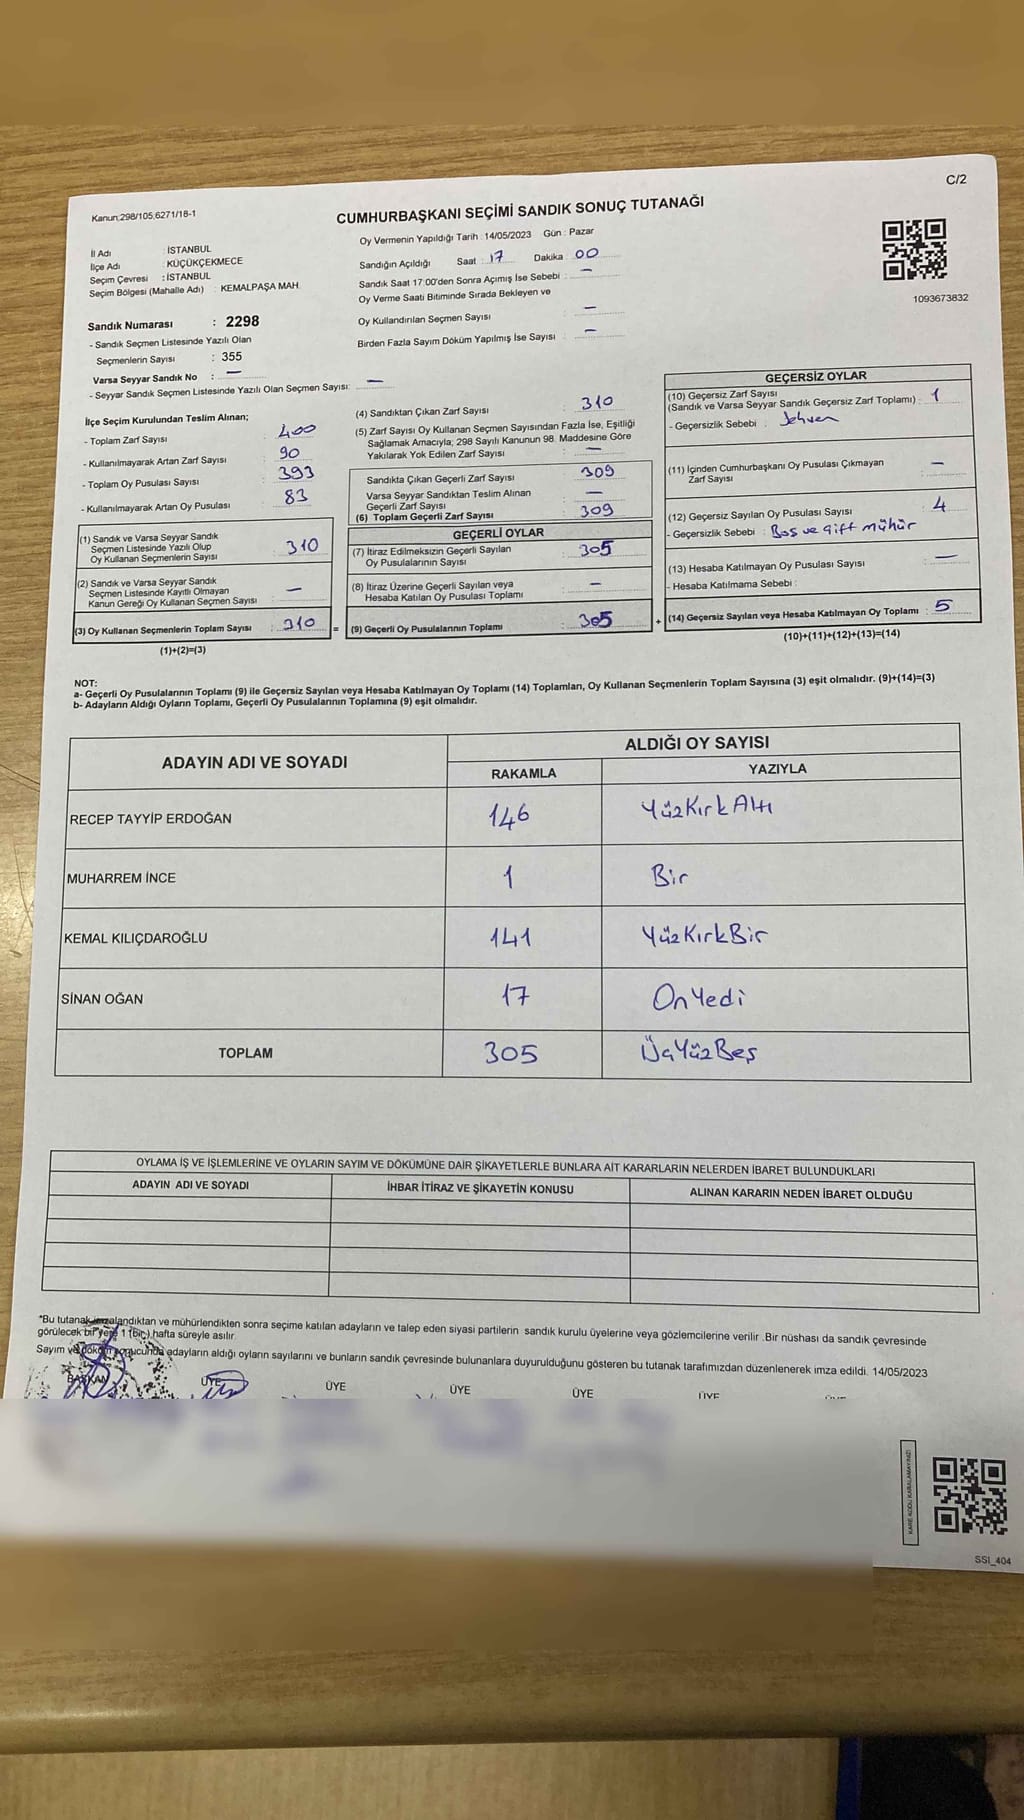 C/2
Kanun;298/105,6271/18-1
CUMHURBAŞKANI SEÇİMİ SANDIK SONUÇ TUTANAĞI
Oy Vermenin Yapıldığı Tarih : 14/05/2023 Gün : Pazar
İl Adı : İSTANBUL
İlçe Adı : KÜÇÜKÇEKMECE
Seçim Çevresi : İSTANBUL
Seçim Bölgesi (Mahalle Adı) : KEMALPAŞA MAH.
Sandığın Açıldığı Saat : 17 Dakika : 00
Sandık Saat 17:00'den Sonra Açımış İse Sebebi : —
Oy Verme Saati Bitiminde Sırada Bekleyen ve
Oy Kullandırılan Seçmen Sayısı : —
Birden Fazla Sayım Döküm Yapılmış İse Sayısı : —
1093673832
Sandık Numarası : 2298
- Sandık Seçmen Listesinde Yazılı Olan
Seçmenlerin Sayısı : 355
Varsa Seyyar Sandık No : —
- Seyyar Sandık Seçmen Listesinde Yazılı Olan Seçmen Sayısı: —
İlçe Seçim Kurulundan Teslim Alınan;
- Toplam Zarf Sayısı : 400
- Kullanılmayarak Artan Zarf Sayısı : 90
- Toplam Oy Pusulası Sayısı : 393
- Kullanılmayarak Artan Oy Pusulası : 83
(1) Sandık ve Varsa Seyyar Sandık
Seçmen Listesinde Yazılı Olup
Oy Kullanan Seçmenlerin Sayısı : 310
(2) Sandık ve Varsa Seyyar Sandık
Seçmen Listesinde Kayıtlı Olmayan
Kanun Gereği Oy Kullanan Seçmen Sayısı : —
(3) Oy Kullanan Seçmenlerin Toplam Sayısı : 310 =
(1)+(2)=(3)
(4) Sandıktan Çıkan Zarf Sayısı : 310
(5) Zarf Sayısı Oy Kullanan Seçmen Sayısından Fazla İse, Eşitliği
Sağlamak Amacıyla; 298 Sayılı Kanunun 98. Maddesine Göre
Yakılarak Yok Edilen Zarf Sayısı : —
Sandıkta Çıkan Geçerli Zarf Sayısı : 309
Varsa Seyyar Sandıktan Teslim Alınan
Geçerli Zarf Sayısı : —
(6) Toplam Geçerli Zarf Sayısı : 309
GEÇERLİ OYLAR
(7) İtiraz Edilmeksizin Geçerli Sayılan
Oy Pusulalarının Sayısı : 305
(8) İtiraz Üzerine Geçerli Sayılan veya
Hesaba Katılan Oy Pusulası Toplamı : —
(9) Geçerli Oy Pusulalarının Toplamı : 305 +
GEÇERSİZ OYLAR
(10) Geçersiz Zarf Sayısı
(Sandık ve Varsa Seyyar Sandık Geçersiz Zarf Toplamı) : 1
- Geçersizlik Sebebi : Sehven
(11) İçinden Cumhurbaşkanı Oy Pusulası Çıkmayan
Zarf Sayısı : —
(12) Geçersiz Sayılan Oy Pusulası Sayısı : 4
- Geçersizlik Sebebi : Boş ve çift mühür
(13) Hesaba Katılmayan Oy Pusulası Sayısı : —
- Hesaba Katılmama Sebebi :
(14) Geçersiz Sayılan veya Hesaba Katılmayan Oy Toplamı : 5
(10)+(11)+(12)+(13)=(14)
NOT:
a- Geçerli Oy Pusulalarının Toplamı (9) ile Geçersiz Sayılan veya Hesaba Katılmayan Oy Toplamı (14) Toplamları, Oy Kullanan Seçmenlerin Toplam Sayısına (3) eşit olmalıdır. (9)+(14)=(3)
b- Adayların Aldığı Oyların Toplamı, Geçerli Oy Pusulalarının Toplamına (9) eşit olmalıdır.
ADAYIN ADI VE SOYADI
ALDIĞI OY SAYISI
RAKAMLA YAZIYLA
RECEP TAYYİP ERDOĞAN 146 YüzKırkAltı
MUHARREM İNCE 1 Bir
KEMAL KILIÇDAROĞLU 141 YüzKırkBir
SİNAN OĞAN 17 OnYedi
TOPLAM 305 ÜçYüzBeş
OYLAMA İŞ VE İŞLEMLERİNE VE OYLARIN SAYIM VE DÖKÜMÜNE DAİR ŞİKAYETLERLE BUNLARA AİT KARARLARIN NELERDEN İBARET BULUNDUKLARI
ADAYIN ADI VE SOYADI İHBAR İTİRAZ VE ŞİKAYETİN KONUSU ALINAN KARARIN NEDEN İBARET OLDUĞU
*Bu tutanak imzalandıktan ve mühürlendikten sonra seçime katılan adayların ve talep eden siyasi partilerin sandık kurulu üyelerine veya gözlemcilerine verilir .Bir nüshası da sandık çevresinde
görülecek bir yere 1 (bir) hafta süreyle asılır.
Sayım ve döküm sonucunda adayların aldığı oyların sayılarını ve bunların sandık çevresinde bulunanlara duyurulduğunu gösteren bu tutanak tarafımızdan düzenlenerek imza edildi. 14/05/2023
BAŞKAN ÜYE ÜYE ÜYE ÜYE ÜYE
KARE KODU KARALAMAYINIZ!
SSI_404